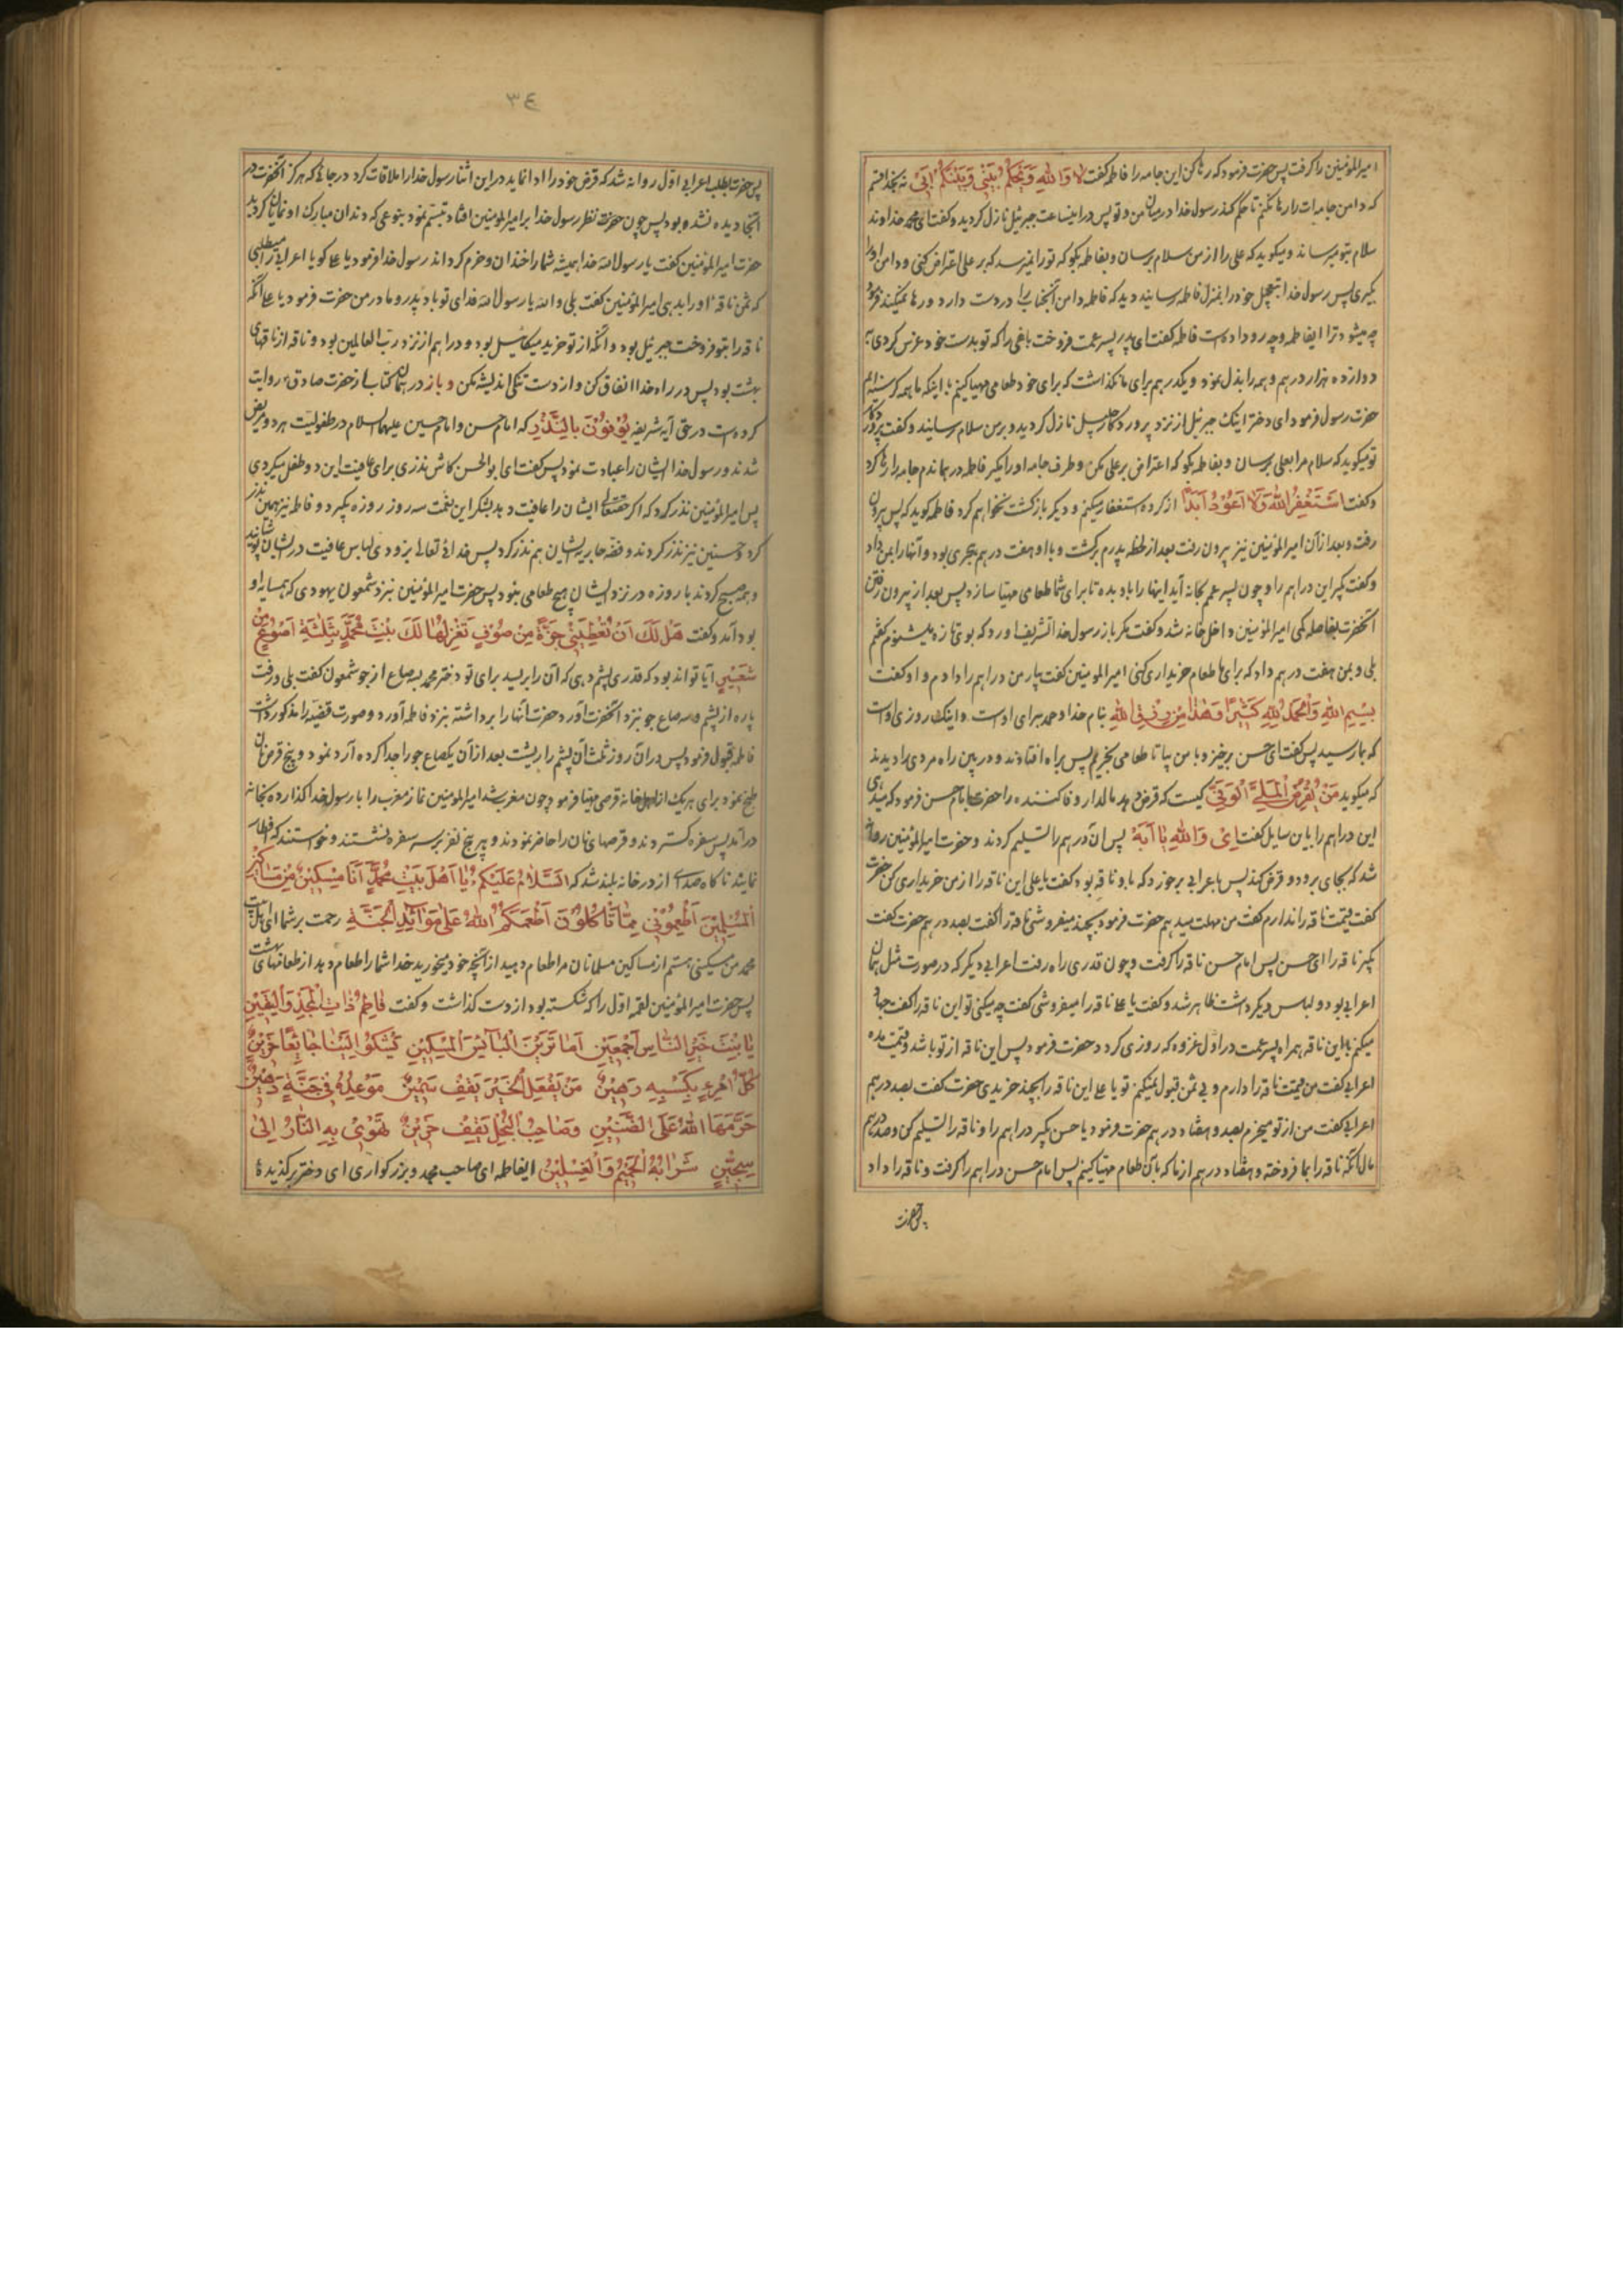 امیرالمؤمنین را گرفت پس حضرت فرمود که رها کن این جامه را فاطمه گفت لا وَاللهِ وَیَحکُمُ بَینی وَبَینَکُم اَبی نه بخدا قسم
که دامن جامه‌ات را رها نکنم تا حکم کند رسول خدا در میان من و تو پس در اینساعت جبرئیل نازل گردید و گفت ای محمد خداوند
سلام بتو میرساند و میگوید که علی را از من سلام برسان و بفاطمه بگو که تو را نمیرسد که بر علی اعتراض کنی و دامن او را
بگیری پس رسول خدا بتعجیل خود را بمنزل فاطمه رسانید دید که فاطمه دامن آنجناب را در دست دارد و رها نمیکند فرمود
چه میشود ترا ایفاطمه و چه رو داده است فاطمه گفت ای پدر پسر عمت فروخت باغی را که تو بدست خود غرس کردی به
دوازده هزار درهم و همه را بذل نمود و یکدرهم برای ما نگذاشت که برای خود طعامی مهیا کنیم با اینکه ما همه گرسنه‌ایم
حضرت رسول فرمود ای دختر اینک جبرئیل از نزد پروردگار جلیل نازل گردید و بر من سلام رسانید و گفت پروردگار
تو میگوید که سلام مرا بعلی برسان و بفاطمه بگو که اعتراض بر علی مکن و طرف جامه او را مگیر فاطمه درماندم جامه را رها کرد
و گفت اَستَغفِرُ اللهَ وَلا اَعُودُ اَبَدًا از کرده استغفار میکنم و دیگر بازگشت نخواهم کرد فاطمه گوید که پس پدرم بیرون
رفت و بعد از آن امیرالمؤمنین نیز بیرون رفت بعد از لحظه پدرم برگشت و با او هفت درهم هجری بود و آنها را بمن داد
و گفت بگیر این دراهم را و چون پسر عمم بخانه آید اینها را باو بده تا برای شما طعامی مهیا سازد پس بعد از بیرون رفتن
آنحضرت بفاصله کمی امیرالمؤمنین داخل خانه شد و گفت مگر باز رسول خدا تشریف آورد که بوی تازه میشنوم گفتم
بلی و بمن هفت درهم داد که برای ما طعام خریداری کنی امیرالمومنین گفت بیار من دراهم را دادم و او گفت
بِسمِ اللهِ وَالحَمدُ لِلهِ کَثیرًا وَهٰذا مِن رِزقِ اللهِ بنام خدا و حمد برای اوست و اینک روزی اوست
که بما رسید پس گفت ای حسن برخیز و با من بیا تا طعامی بخریم پس براه افتادند و در بین راه مردی را دیدند
که میگوید مَن یُقرِضُ المَلِیَّ الوَفِیَّ کیست که قرض دهد مالدار وفا کننده را حضرت با امام حسن فرمود که میدهی
این دراهم را باین سایل گفت اِی وَاللهِ یا اَبَه پس آن درهم را تسلیم کردند و حضرت امیرالمؤمنین روانه
شد که بجای برود و قرض کند پس باعرابی برخورد که باو ناقه بود گفت یا علی این ناقه را از من خریداری کن حضرت
گفت قیمت ناقه را ندارم گفت من مهلت میدهم حضرت فرمود بچند میفروشی ناقه را گفت بصد درهم حضرت گفت
بگیر ناقه را ای حسن پس امام حسن ناقه را گرفت و چون قدری راه رفت اعرابی دیگر که در صورت مثل همان
اعرابی بود و لباس دیگر داشت ظاهر شد و گفت یا علی ناقه را میفروشی گفت چه میکنی تو این ناقه را گفت جهاد
میکنم با این ناقه همراه پسر عمت در اول غزوه که روزی کرد حضرت فرمود پس این ناقه از تو باشد و قیمت مده
اعرابی گفت من قیمت ناقه را دارم و بی ثمن قبول نمیکنم تو یا علی این ناقه را بچند خریدی حضرت گفت بصد درهم
اعرابی گفت من از تو میخرم بصد و هفتاد درهم حضرت فرمود یا حسن بگیر دراهم را و ناقه را تسلیم کن و صد درهم
مال آنکه ناقه را بما فروخته و هفتاد درهم از ما که بآن طعام مهیا کنیم پس امام حسن دراهم را گرفت و ناقه را داد
پس حضرت
٣٤
پس حضرت بطلب اعرابی اول روانه شد که قرض خود را ادا نماید در این اثنا رسول خدا را ملاقات کرد در جائی که هرگز آنحضرت در
آنجا دیده نشده بود پس چون حضرت نظر رسول خدا بر امیرالمومنین افتاد تبسّم نمود بنوعی که دندان مبارک او نمایان گردید
حضرت امیرالمؤمنین گفت یا رسول الله خدا همیشه شما را خندان و خرم گرداند رسول خدا فرمود یا علی گویا اعرابی را میطلبی
که ثمن ناقه او را بدهی امیرالمؤمنین گفت بلی والله یا رسول الله فدای تو باد پدر و مادر من حضرت فرمود یا علی آنکه
ناقه را بتو فروخت جبرئیل بود و آنکه از تو خرید میکائیل بود و دراهم از نزد رب العالمین بود و ناقه از ناقهای
بهشت بود پس در راه خدا انفاق کن و از دست تنگی اندیشه مکن و باز در همان کتاب از حضرت صادق روایت
کرده‌ست در حق آیه شریفه یُوفُونَ بِالنَّذرِ که امام حسن و امام حسین علیهما السلام در طفولیت هر دو مریض
شدند و رسول خدا ایشان را عیادت نمود پس گفت ای بوالحسن کاش نذری برای عافیت این دو طفل میکردی
پس امیرالمؤمنین نذر کرد که اگر حقتعالی ایشان را عافیت دهد بشکر این نعمت سه روز روزه بگیرد و فاطمه نیز همین نذر
کرد و حسنین نیز نذر کردند و فضه جاریه ایشان هم نذر کرد پس خدای تعالی بزودی لباس عافیت در ایشان پوشانید
و همه صبح کردند با روزه در نزد ایشان هیچ طعامی نبود پس حضرت امیرالمؤمنین نزد شمعون یهودی که همسایه او
بود آمد و گفت هَل لَکَ اَن تُعطِیَنی جِزَّةً مِن صُوفٍ تَغزِلُها لَکَ بِنتُ مُحَمَّدٍ بِثَلٰثَةِ اَصوُعٍ مِن
شَعیرٍ آیا تواند بود که قدری پشم دهی که آن را بریسد برای تو دختر محمد بسه صاع از جو شمعون گفت بلی و رفت
پاره از پشم و سه صاع جو بنزد آنحضرت آورد و حضرت آنها را برداشته بنزد فاطمه آورد و صورت قضیه را مذکور داشت
فاطمه قبول فرمود پس در آن روز ثلث آن پشم را ریشت بعد از آن یکصاع جو را جدا کرده آرد نمود و پنج قرص نان
طبخ نمود برای هر یک از اهل خانه قرصی مهیا فرمود و چون مغرب شد امیرالمومنین نماز مغرب را با رسول خدا گذارده بخانه
درآمد پس سفره گستردند و قرصهای نان را حاضر نمودند و هر پنج نفر بر سر سفره نشستند و خواستند که افطار
نمایند ناگاه صدای از در خانه بلند شد که اَلسَّلامُ عَلَیکُم یا اَهلَ بَیتِ مُحَمَّدٍ اَنَا مِسکینٌ مِن مَساکینِ
المُسلِمینَ اَطعِمُونی مِمّا تَاکُلُونَ اَطعَمَکُمُ اللهُ عَلیٰ مَوائِدِ الجَنَّةِ رحمت بر شما ای اهل بیت
محمد من مسکینی هستم از مساکین مسلمانان مرا طعام دهید از آنچه خود میخورید خدا شما را طعام دهد از طعامهای بهشت
پس حضرت امیرالمؤمنین لقمه اول را که شکسته بود از دست گذاشت و گفت فاطِمُ ذاتَ المَجدِ وَالیَقینِ
یا بِنتَ خَیرِ النّاسِ اَجمَعینَ اَما تَرَینَ البآئِسَ المِسکینِ یَشکُو اِلَینا جائِعًا حَزینٌ
کُلُّ امرِءٍ بِکَسبِهِ رَهینٌ مَن یَفعَلِ الخَیرَ یَقِف سَمینٌ مَوعِدُهُ فی جَنَّةٍ دَهینٌ
حَرَّمَهَا اللهُ عَلَی الضَّنینِ وَصاحِبُ البُخلِ یَقِف حَزینٌ تَهوی بِهِ النّارُ اِلیٰ
سِجّینٍ شَرابُهُ الحَمیمُ وَالغِسلینُ ایفاطمه ای صاحب مجد و بزرگواری ای دختر برگزیدهٔ